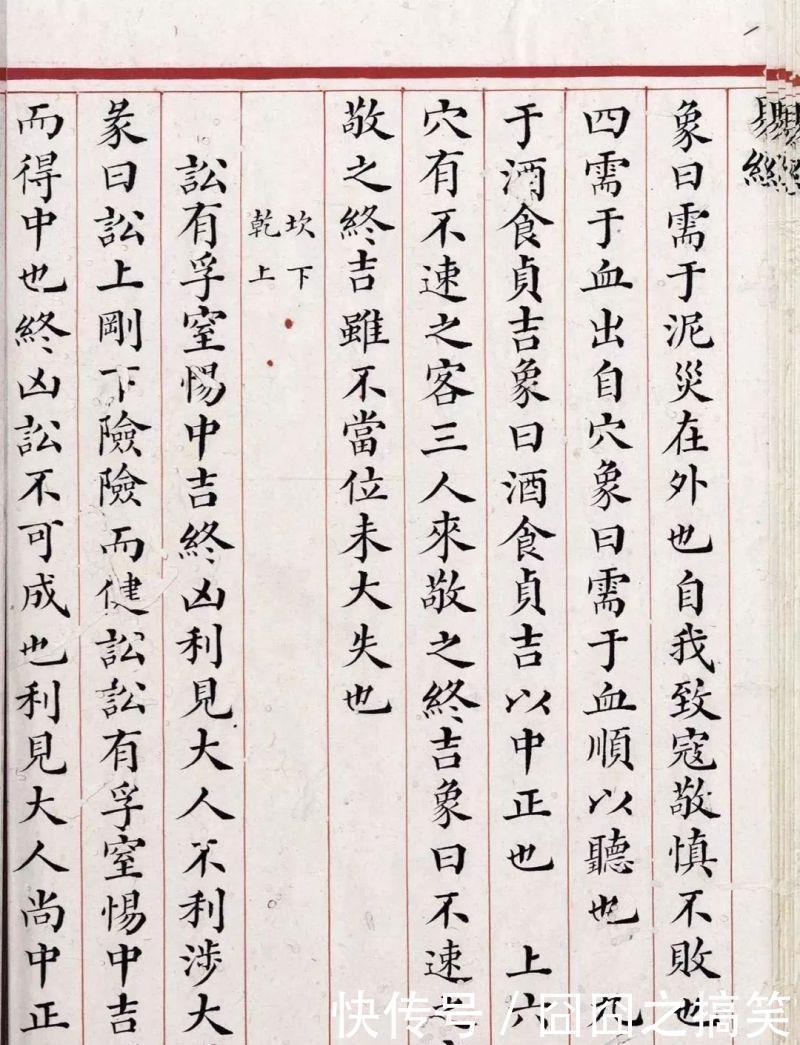 象曰需于泥災在外也自我致寇敬慎不敗也
四需于血出自穴象曰需于血順以聽也 九
于酒食貞吉象曰酒食貞吉以中正也 上六
穴有不速之客三人來敬之終吉象曰不速之
敬之終吉雖不當位未大失也
坎下
乾上
訟有孚窒惕中吉終凶利見大人不利涉大
彖曰訟上剛下險險而健訟訟有孚窒惕中吉
而得中也終凶訟不可成也利見大人尚中正
快传号 / 囧囧之搞笑